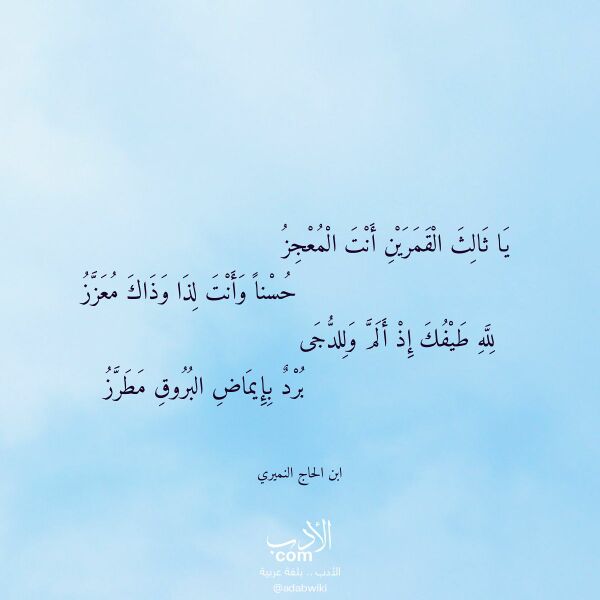 يَا ثَالِثَ الْقَمَرَيْنِ أَنْتَ الْمُعْجِزُ
حُسْناً وَأَنْتَ لِذَا وَذَاكَ مُعَزَّزُ
لِلَّهِ طَيْفُكَ إِذْ أَلَمَّ وَلِلدُّجَى
بُرْدٌ بِإِيمَاضِ البُرُوقِ مَطَرَّزُ
ابن الحاج النميري
الأدب
.com
الأدب .. بلغة عربية
@adabwiki